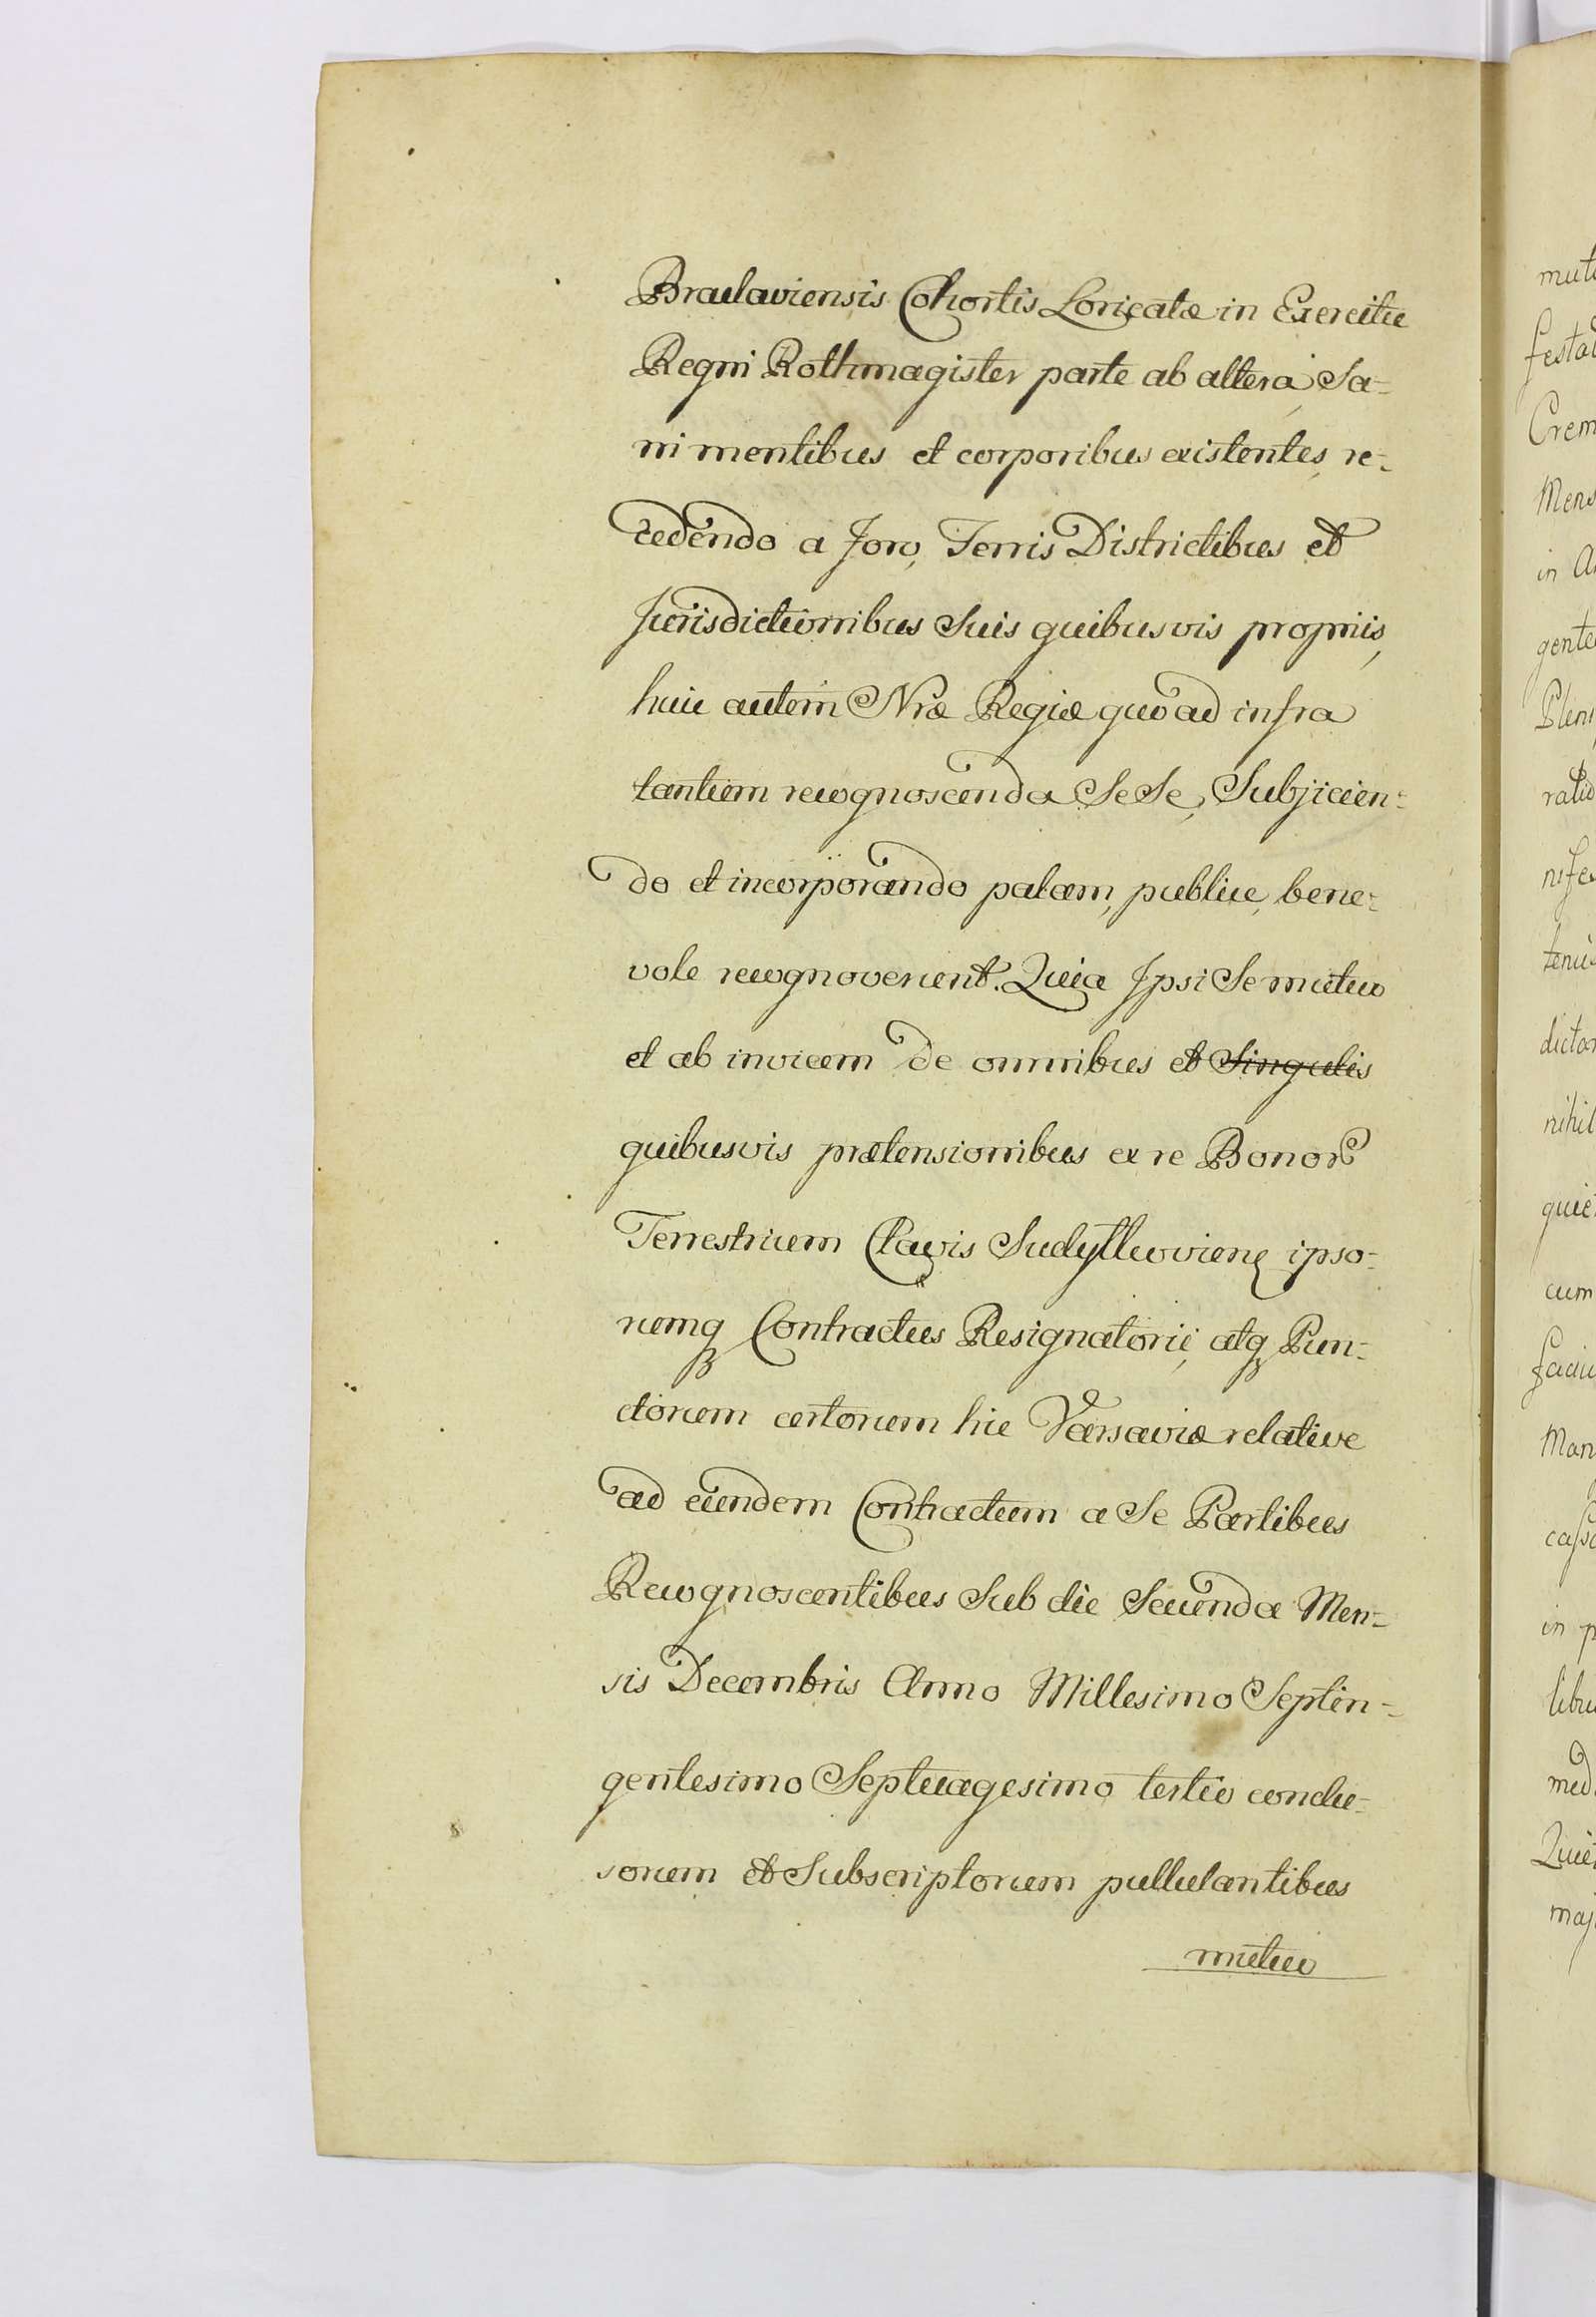 Braclaviensis Cohortis Loricatæ in Exercitu
Regni Rothmagister parte ab altera, Sa-
ni mentibus et corporibus existentes, re-
cedendo a Foro, Terris Districtibus et
Jurisdictionibus Suis quibusvis propriis,
huic autem Nræ Regiæ quo ad infra
tantum recognoscenda Se Se, Subjicien-
do et incorporando palam, publice, bene-
vole recognoverunt. Quia Ipsi Se mutuo
et ab invicem de omnibus et Singulis
quibusvis prætensionibus ex re Bonor
Terrestrium Clavis ipso-
rumq Contractus Resignatorii, atq Pun-
ctorum certorum hic Varsaviæ relative
ad eundem Contractum a Se Partibus
Recognoscentibus Sub die Secunda Men-
sis Decembris Anno Millesimo Septin-
gentesimo Septuagesimo tertio conclu-
sorum et Subscriptorum pullulantibus
mutuo
mut
Crem
Mens
in A
gente
Plen
ratio
nife
tenu
dicto
nihil
quie
cum
faciu
Man
in p
libu
med
Quie
maj